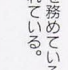 を務めている
れている。